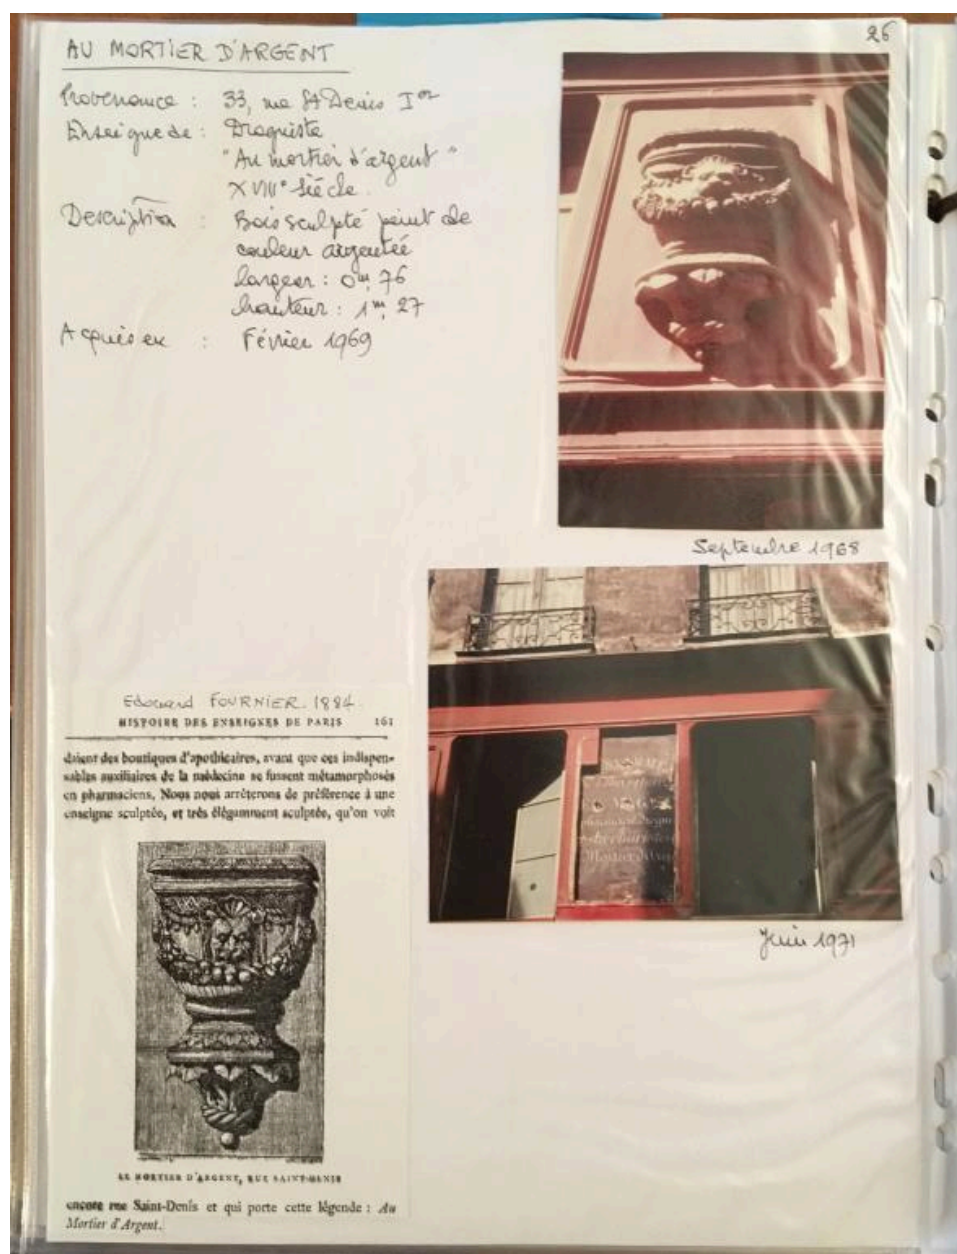 26
AU MORTIER D'ARGENT
Provenance : 33, rue St Denis Ier
Enseigne de : Droguiste
"Au mortier d'argent"
XVIIIe siècle.
Description : Bois sculpté peint de
couleur argentée
largeur : 0m, 76
hauteur : 1m, 27
Acquis en : Février 1969
Septembre 1968
Mortier d'Arg
Juin 1971
Edouard FOURNIER. 1884.
HISTOIRE DES ENSEIGNES DE PARIS 161
daient des boutiques d'apothicaires, avant que ces indispen-
sables auxiliaires de la médecine se fussent métamorphosés
en pharmaciens. Nous nous arrêterons de préférence à une
enseigne sculptée, et très élégamment sculptée, qu'on voit
LE MORTIER D'ARGENT, RUE SAINT-DENIS
encore rue Saint-Denis et qui porte cette légende : Au
Mortier d'Argent.